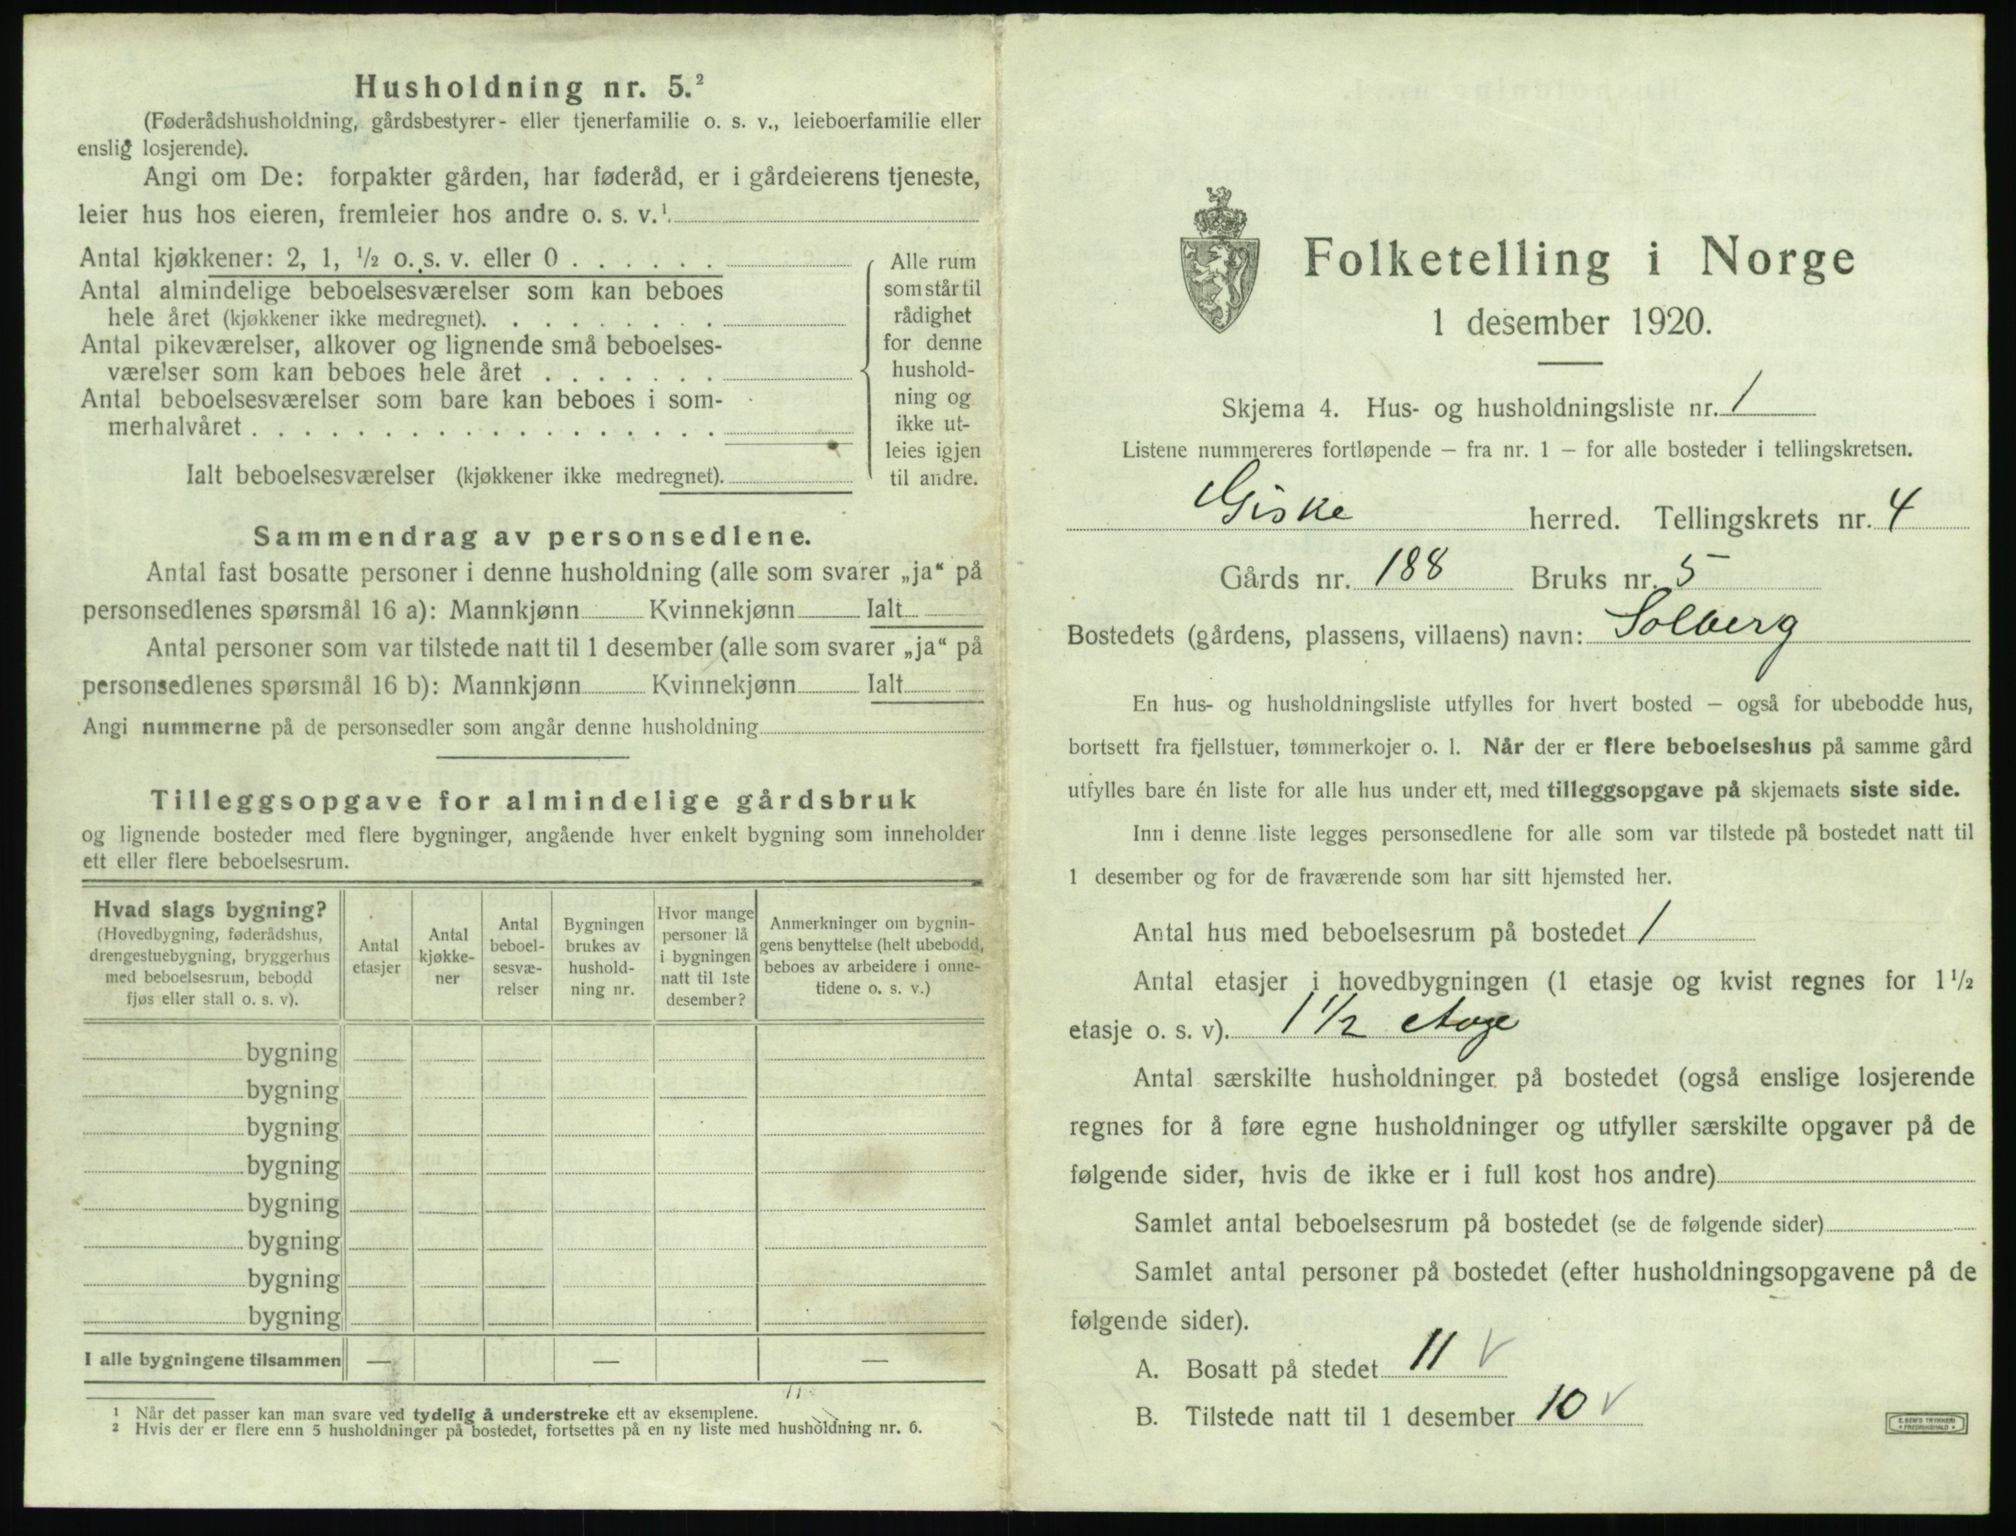 Husholdning nr. 5.²
(Føderådshusholdning, gårdsbestyrer- eller tjenerfamilie o. s. v., leieboerfamilie eller
enslig losjerende).
Angi om De: forpakter gården, har føderåd, er i gårdeierens tjeneste,
leier hus hos eieren, fremleier hos andre o. s. v.¹
Antal kjøkkener: 2, 1, ½ o. s. v. eller 0
Antal almindelige beboelsesværelser som kan beboes
hele året (kjøkkener ikke medregnet).
Antal pikeværelser, alkover og lignende små beboelses-
værelser som kan beboes hele året
Antal beboelsesværelser som bare kan beboes i som-
merhalvåret
Alle rum
som står til
rådighet
for denne
hushold-
ning og
ikke ut-
leies igjen
til andre.
Ialt beboelsesværelser (kjøkkener ikke medregnet).
Sammendrag av personsedlene.
Antal fast bosatte personer i denne husholdning (alle som svarer „ja“ på
personsedlenes spørsmål 16 a): Mannkjønn Kvinnekjønn Ialt
Antal personer som var tilstede natt til 1 desember (alle som svarer „ja“ på
personsedlenes spørsmål 16 b): Mannkjønn Kvinnekjønn Ialt
Angi nummerne på de personsedler som angår denne husholdning
Tilleggsopgave for almindelige gårdsbruk
og lignende bosteder med flere bygninger, angående hver enkelt bygning som inneholder
ett eller flere beboelsesrum.
Hvad slags bygning?
(Hovedbygning, føderådshus,
drengestuebygning, bryggerhus
med beboelsesrum, bebodd
fjøs eller stall o. s. v).
Antal
etasjer
Antal
kjøkke-
ner
Antal
beboel-
sesvæ-
relser
Bygningen
brukes av
hushold-
ning nr.
Hvor mange
personer lå
i bygningen
natt til 1ste
desember?
Anmerkninger om bygnin-
gens benyttelse (helt ubebodd,
beboes av arbeidere i onne-
tidene o. s. v.)
bygning
bygning
bygning
bygning
bygning
bygning
bygning
bygning
I alle bygningene tilsammen — — —
¹ Når det passer kan man svare ved tydelig å understreke ett av eksemplene.
² Hvis der er flere enn 5 husholdninger på bostedet, fortsettes på en ny liste med husholdning nr. 6.
Folketelling i Norge
1 desember 1920.
Skjema 4. Hus- og husholdningsliste nr. 1
Listene nummereres fortløpende – fra nr. 1 – for alle bosteder i tellingskretsen.
Giske herred. Tellingskrets nr. 4
Gårds nr. 188 Bruks nr. 5
Bostedets (gårdens, plassens, villaens) navn: Solberg
En hus- og husholdningsliste utfylles for hvert bosted – også for ubebodde hus,
bortsett fra fjellstuer, tømmerkojer o. l. Når der er flere beboelseshus på samme gård
utfylles bare én liste for alle hus under ett, med tilleggsopgave på skjemaets siste side.
Inn i denne liste legges personsedlene for alle som var tilstede på bostedet natt til
1 desember og for de fraværende som har sitt hjemsted her.
Antal hus med beboelsesrum på bostedet 1
Antal etasjer i hovedbygningen (1 etasje og kvist regnes for 1 ½
etasje o. s. v). 1 ½ etage
Antal særskilte husholdninger på bostedet (også enslige losjerende
regnes for å føre egne husholdninger og utfyller særskilte opgaver på de
følgende sider, hvis de ikke er i full kost hos andre)
Samlet antal beboelsesrum på bostedet (se de følgende sider)
Samlet antal personer på bostedet (efter husholdningsopgavene på de
følgende sider).
A. Bosatt på stedet 11 v
B. Tilstede natt til 1 desember 10 v